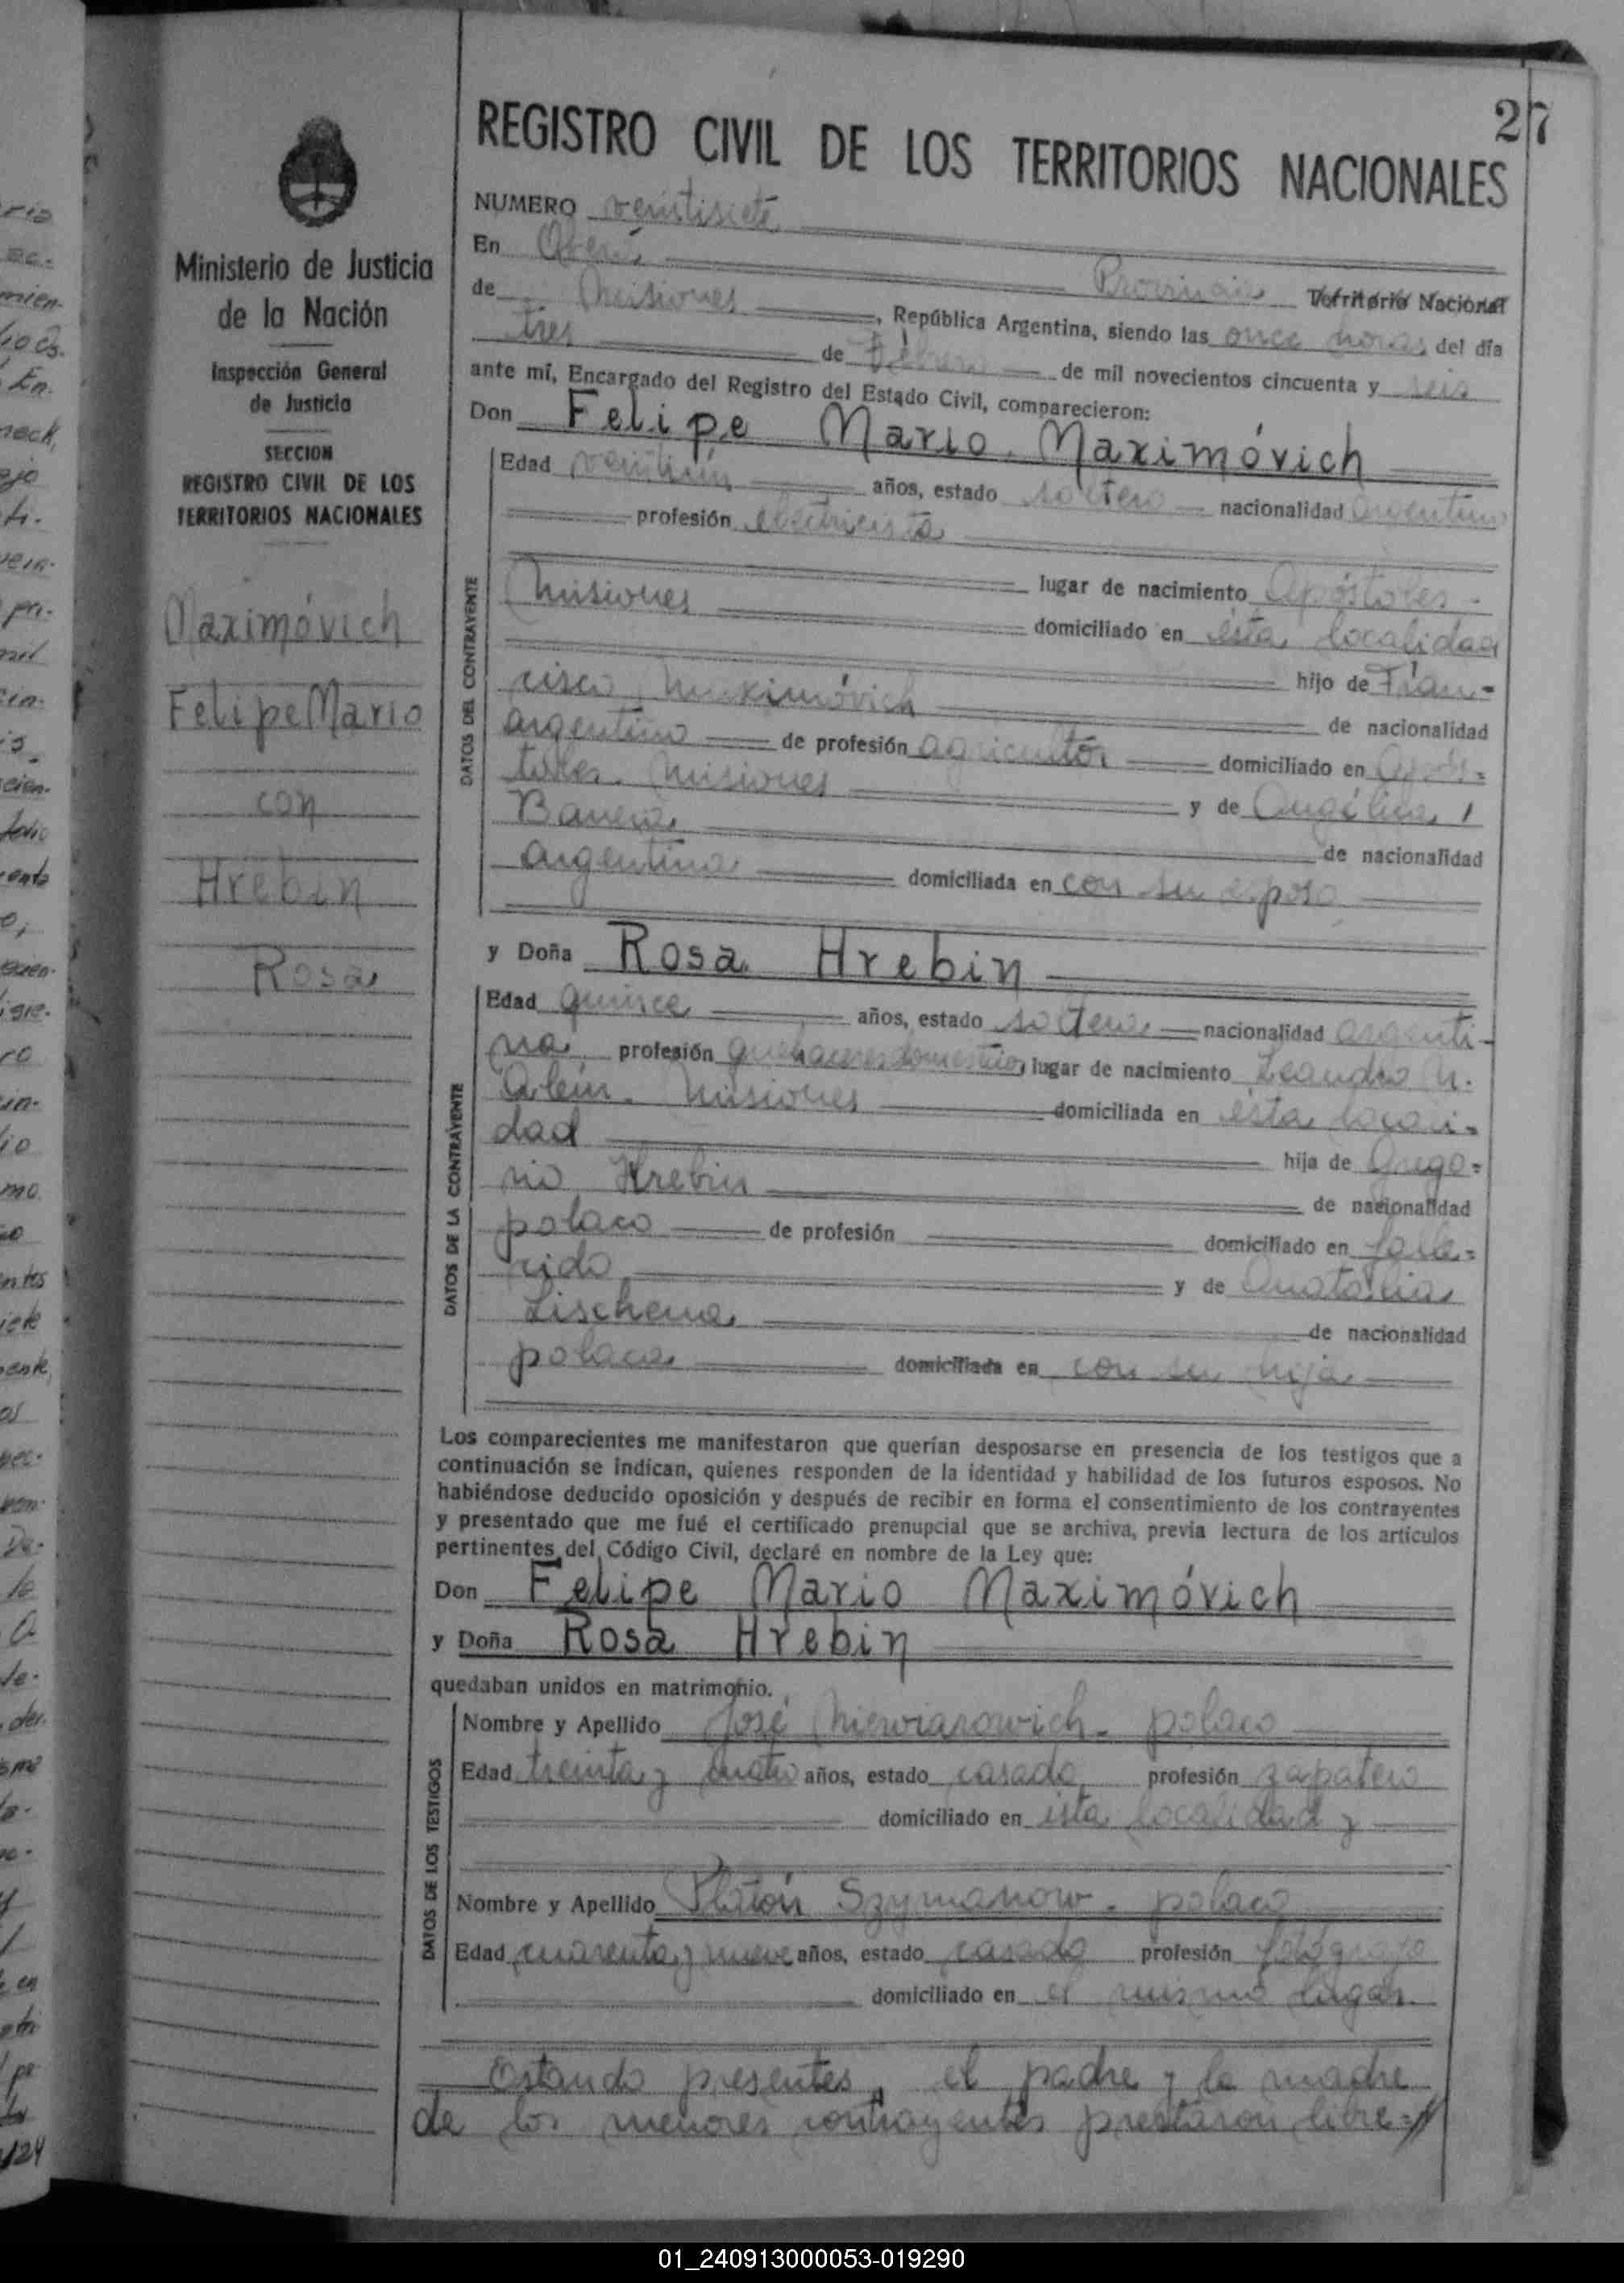 27
REGISTRO CIVIL DE LOS TERRITORIOS NACIONALES
Ministerio de Justicia
de la Nación
Inspección General
de Justicia
SECCION
REGISTRO CIVIL DE LOS
TERRITORIOS NACIONALES
Maximóvich
Felipe Mario
con
Hrebin
Rosa
NUMERO veintisiete
En Oberá
Provincia Territorio Nacional
de Misiones, República Argentina, siendo las once horas del día
tres de Febrero de mil novecientos cincuenta y seis
ante mí, Encargado del Registro del Estado Civil, comparecieron:
Don Felipe Mario Maximóvich
DATOS DEL CONTRAYENTE
Edad veintiún años, estado soltero nacionalidad argentino
profesión electricista
lugar de nacimiento Apóstoles-
Misiones domiciliado en ésta localidad
hijo de Fran=
cisco Maximóvich de nacionalidad
argentino de profesión agricultor domiciliado en Após=
toles. Misiones y de Angélica
de nacionalidad
argentina domiciliada en con su esposo
y Doña Rosa Hrebin
DATOS DE LA CONTRAYENTE
Edad quince años, estado soltera nacionalidad argenti-
na profesión quehaceres domésticos lugar de nacimiento Leandro N.
Alem. Misiones domiciliada en ésta locali=
dad hija de Grego=
rio Hrebin de nacionalidad
polaco de profesión domiciliado en falle=
cido y de Anatalia
Lischena de nacionalidad
polaca domiciliada en con su hija
Los comparecientes me manifestaron que querían desposarse en presencia de los testigos que a
continuación se indican, quienes responden de la identidad y habilidad de los futuros esposos. No
habiéndose deducido oposición y después de recibir en forma el consentimiento de los contrayentes
y presentado que me fué el certificado prenupcial que se archiva, previa lectura de los artículos
pertinentes del Código Civil, declaré en nombre de la Ley que:
Don Felipe Mario Maximóvich
y Doña Rosa Hrebin
quedaban unidos en matrimonio.
DATOS DE LOS TESTIGOS
Nombre y Apellido José polaco
Edad treinta y cuatro años, estado casado profesión zapatero
domiciliado en ésta localidad y
Nombre y Apellido Platón Szymanow. polaco
Edad cuarenta y nueve años, estado casado profesión fotógrafo
domiciliado en el mismo lugar.
Estando presentes, el padre y la madre
de los menores contrayentes prestaron libre=//
01_240913000053-019290